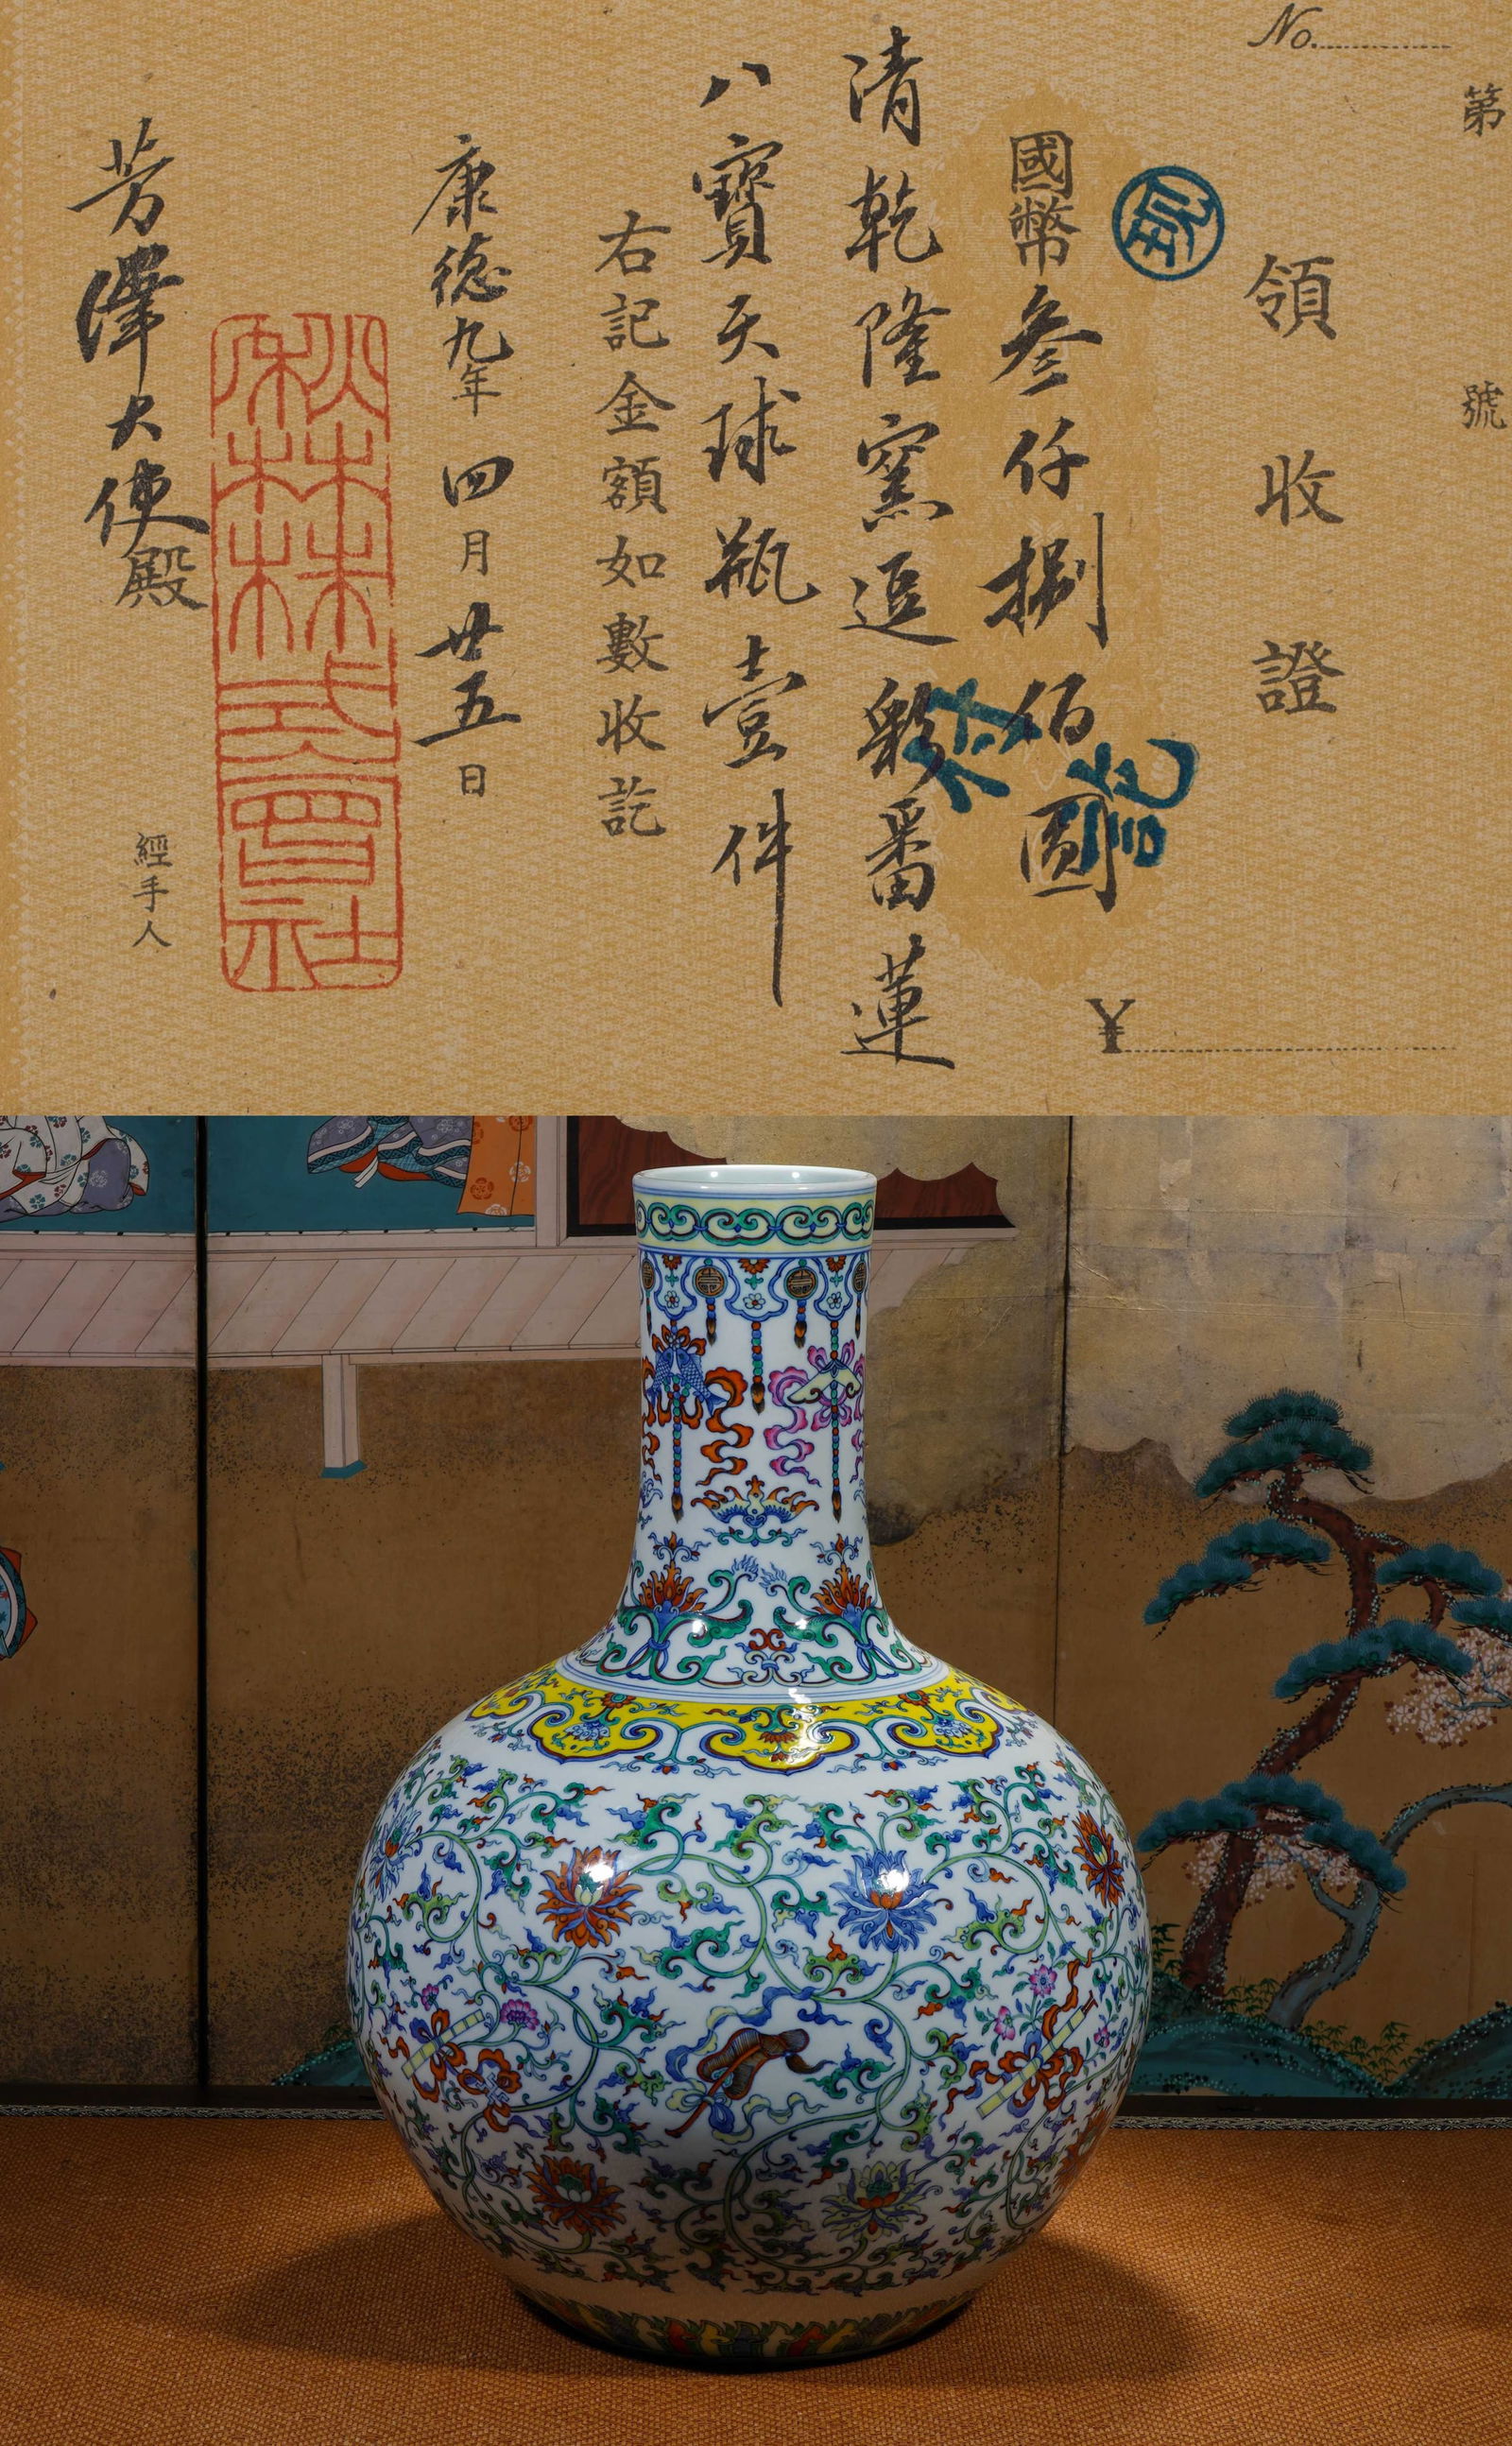 第 號
No.
領收證
¥
國幣叁仟捌佰圓
付訖
清乾隆窯逗彩番蓮
八寶天球瓶壹件
右記金額如數收訖
康德九年四月廿五日
秋林株式會社
芳澤大使殿
經手人